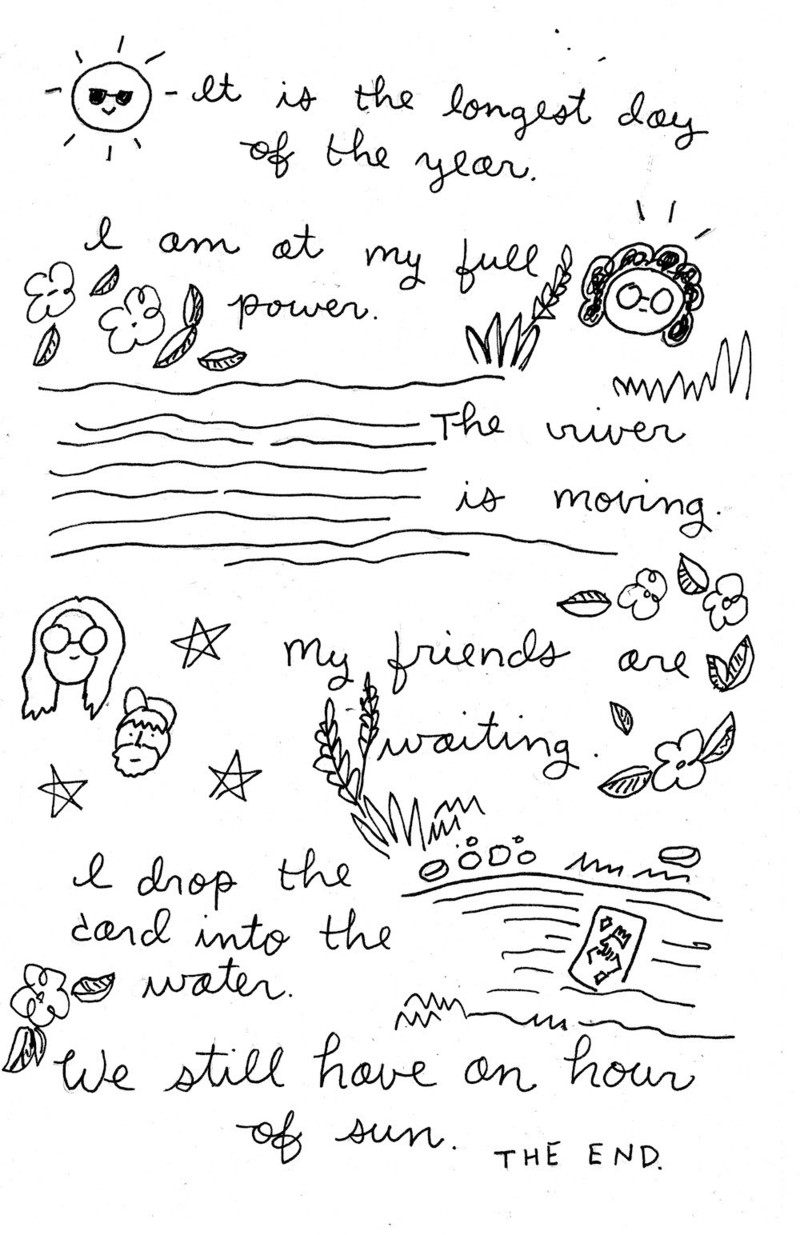 It is the longest day
of the year.
I am at my full
power.
The river
is moving.
My friends are
waiting.
I drop the
card into the
water.
We still have an hour
of sun.
THE END.